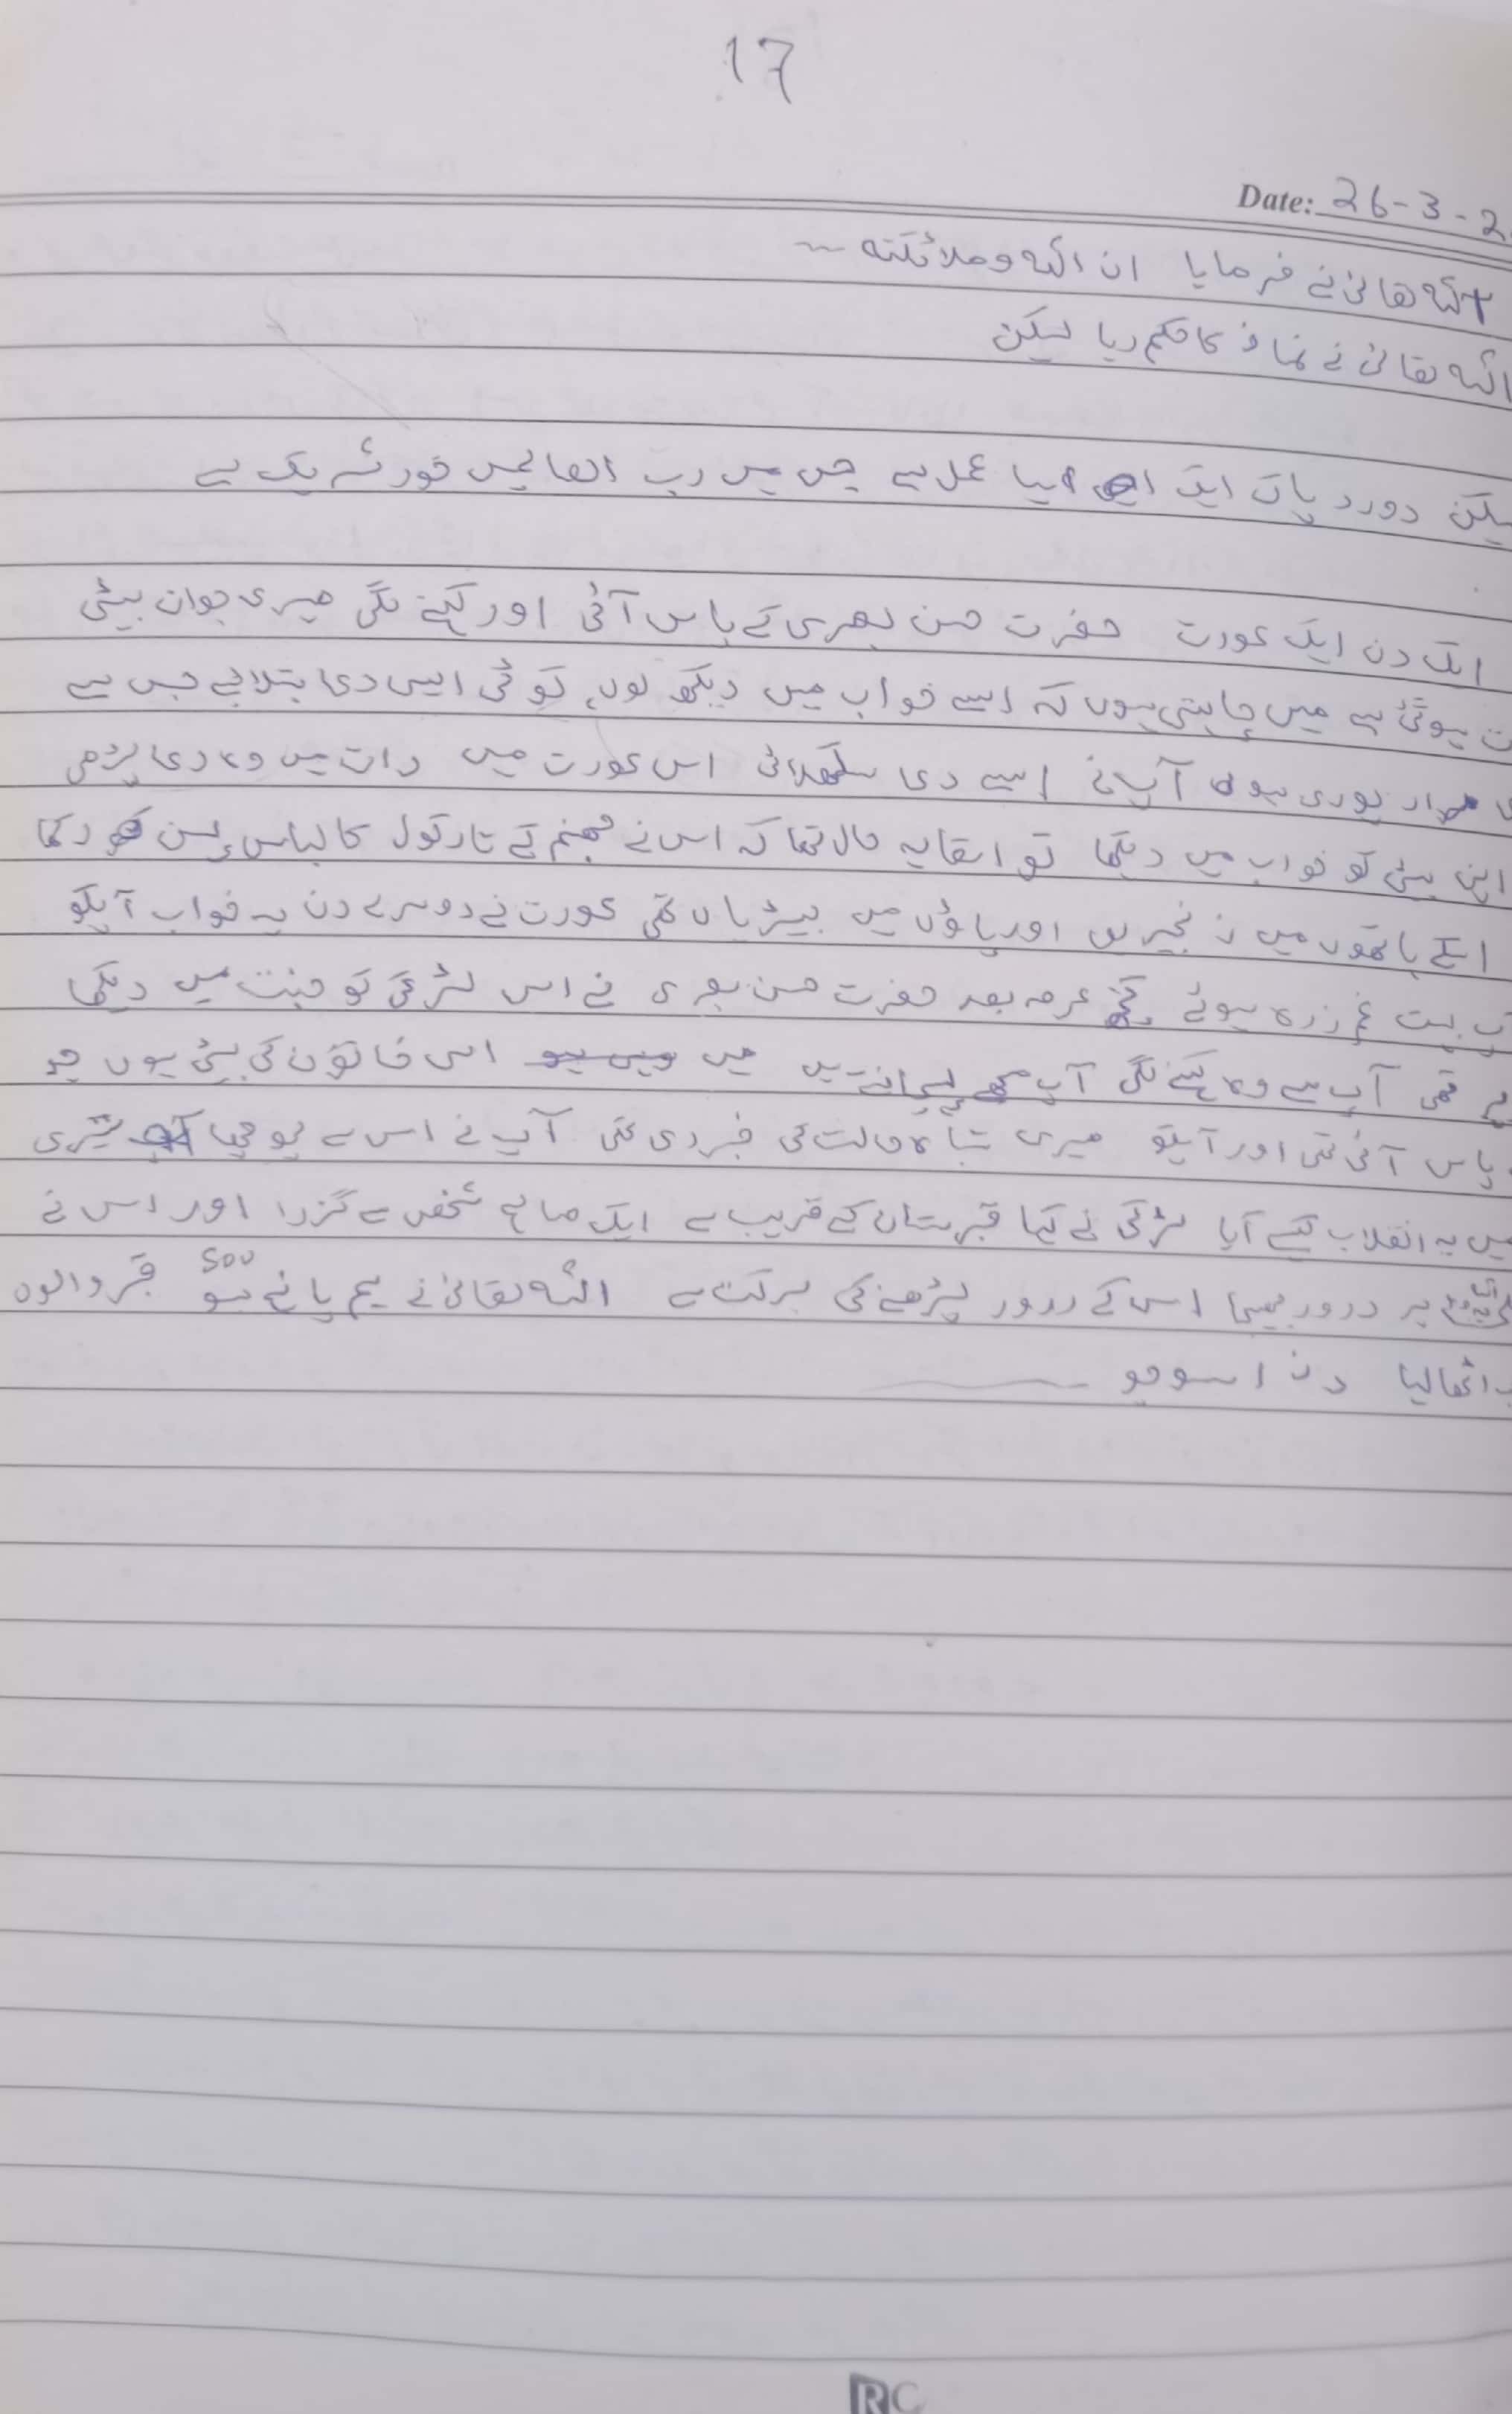 17
Date: 26-3-2
اللہ تعالیٰ نے فرمایا ان اللہ وملائکتہ ~
اللہ تعالیٰ نے نماز کا حکم دیا لیکن
لیکن دورد پاک ایک ایسا عمل ہے جس میں رب العالمیں خود شریک ہے
ایک دن ایک عورت حضرت حسن بصری کے پاس آئی اور کہنے لگی میری جوان بیٹی
ہوگئی ہے میں چاہتی ہوں کہ اسے خواب میں دیکھ لوں، کوئی ایسی دعا بتلائیے جس سے
مراد پوری ہو آپ نے اسے دعا سکھلائی اس عورت میں رات میں وہ دعا پڑھی
اپنی بیٹی کو خواب میں دیکھا تو اسکا یہ حال تھا کہ اس نے جہنم کے تارکول کا لباس پہن رکھا
اسکے ہاتھوں میں زنجیریں اور پاؤں میں بیڑیاں تھی عورت نے دوسرے دن یہ خواب آپکو
آپ بہت غم زدہ ہوئے کچھ عرصہ بعد حضرت حسن بصری نے اس لڑکی کو جنت میں دیکھا
تھی آپ سے وہ کہنے لگی آپ مجھے پہچانتے ہیں میں اس خاتون کی بیٹی ہوں جو
پاس آئی تھی اور آپکو میری تباہ حالت کی خبر دی تھی آپ نے اس سے پوچھا تیری
میں یہ انقلاب کیسے آیا لڑکی نے کہا قبرستان کے قریب سے ایک صالح شخص سے گزرا اور اس نے
پر درود بھیجا اس کے درود پڑھنے کی برکت سے اللہ تعالیٰ نے ہم پانچ سو 500 قبر والوں
اٹھالیا ذرا سوچو
RC